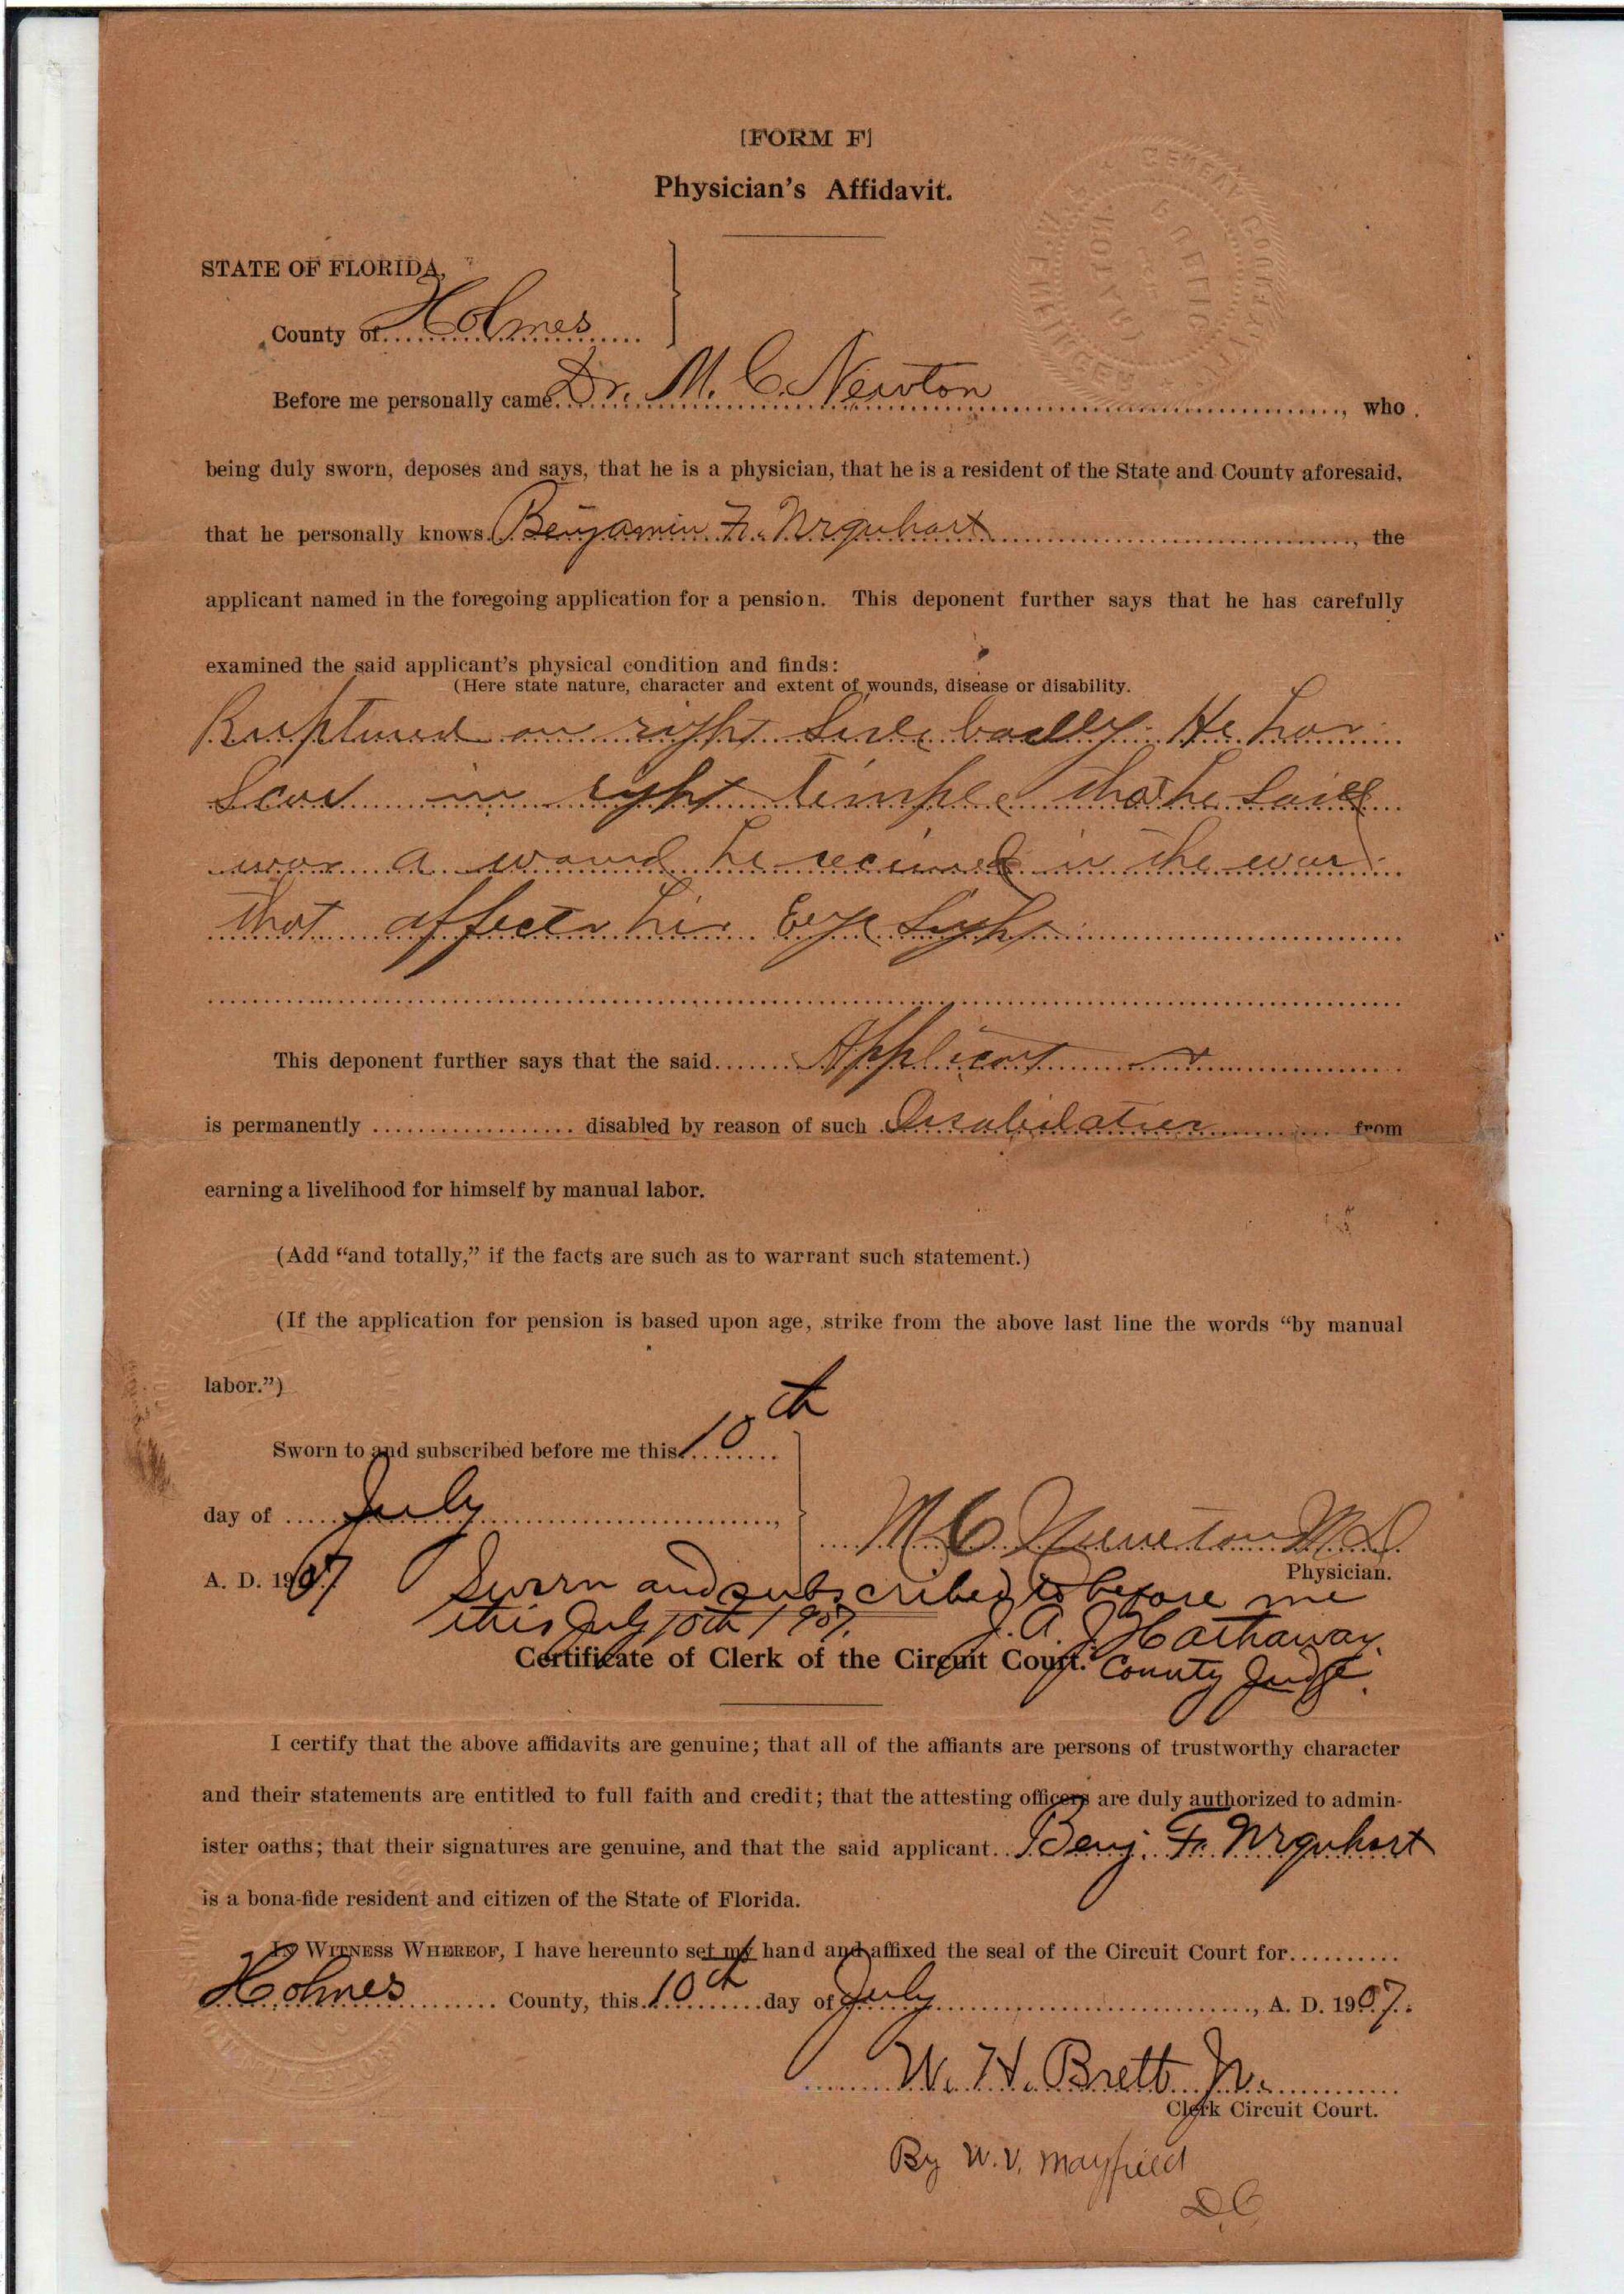 [FORM F]
Physician's Affidavit.
STATE OF FLORIDA,
County of Holmes
Before me personally came Dr. M. C. Newton, who
being duly sworn, deposes and says, that he is a physician, that he is a resident of the State and County aforesaid,
that he personally knows Benjamin F. Urquhart, the
applicant named in the foregoing application for a pension. This deponent further says that he has carefully
examined the said applicant's physical condition and finds:
(Here state nature, character and extent of wounds, disease or disability.
Ruptured on right side badly. He has
Scar in right temple that he said
was a wound he received in the war
that affects his Eye Sight
This deponent further says that the said Applicant
is permanently disabled by reason of such from
earning a livelihood for himself by manual labor.
(Add “and totally,” if the facts are such as to warrant such statement.)
(If the application for pension is based upon age, strike from the above last line the words “by manual
labor.”)
Sworn to and subscribed before me this 10th
day of July,
A. D. 1907
M C Newton M.D.
Physician.
Sworn and subscribed to before me
this July 10th 1907.
J. A. J. Hathaway.
County Judge.
Certificate of Clerk of the Circuit Court.
I certify that the above affidavits are genuine; that all of the affiants are persons of trustworthy character
and their statements are entitled to full faith and credit; that the attesting officers are duly authorized to admin-
ister oaths; that their signatures are genuine, and that the said applicant Benj. F. Urquhart
is a bona-fide resident and citizen of the State of Florida.
In Witness Whereof, I have hereunto set my hand and affixed the seal of the Circuit Court for
Holmes County, this 10th day of July, A. D. 1907.
W. H. Brett Jr.
Clerk Circuit Court.
By W. V. Mayfield
D C